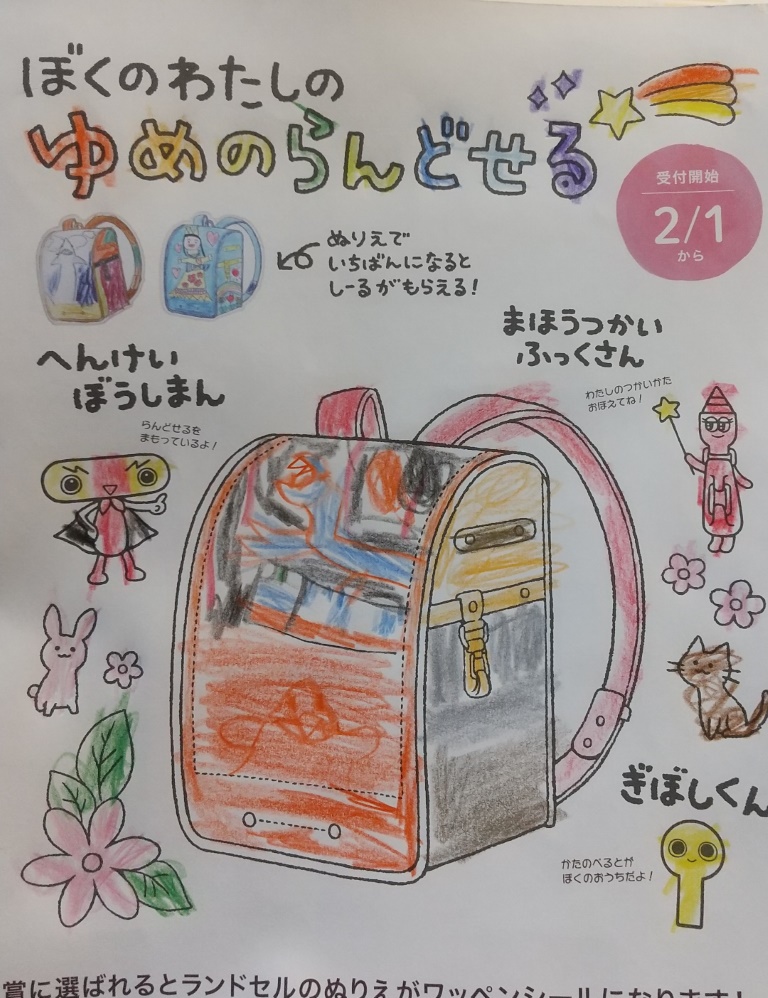 ぼくのわたしの
ゆめのらんどせる
受付開始
2/1
から
ぬりえで
いちばんになると
しーるがもらえる!
まほうつかい
ふっくさん
わたしのつかいかた
おぼえてね!
へんけい
ぼうしまん
らんどせるを
まもっているよ!
ぎぼしくん
かたのべるとが
ぼくのおうちだよ!
賞に選ばれるとランドセルのぬりえがワッペンシールになります!